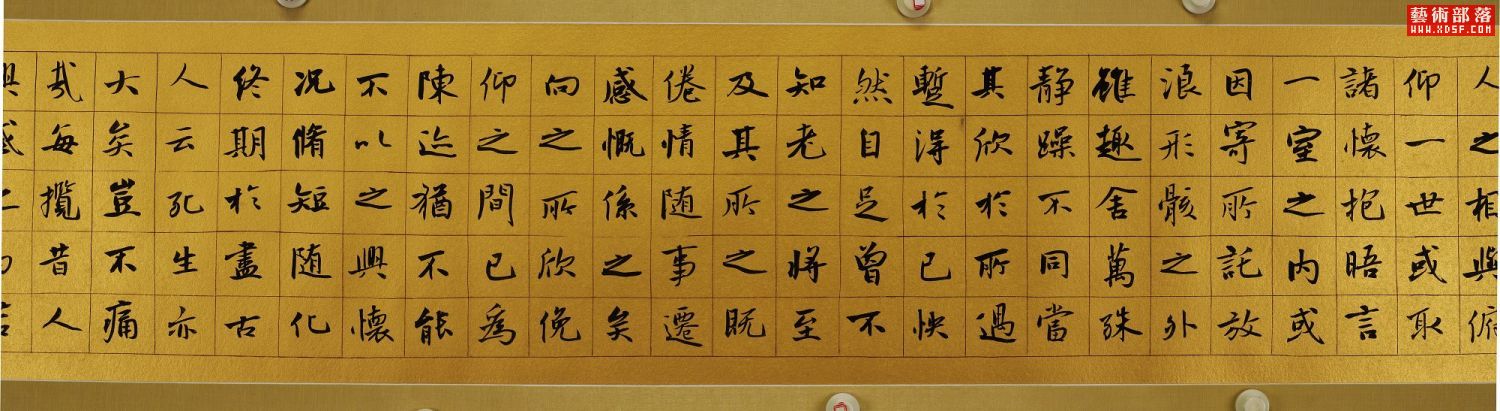 藝術部落
WWW.XDSF.COM
人之相與俯
仰一世或取
諸懷抱晤言
一室之内或
因寄所託放
浪形骸之外
雖趣舍萬殊
静躁不同當
其欣於所遇
暫得於己快
然自足曾不
知老之將至
及其所之既
倦情随事遷
感慨係之矣
向之所欣俛
仰之間已為
陳迹猶不能
不以之興懷
况脩短随化
終期於盡古
人云死生亦
大矣豈不痛
哉每攬昔人